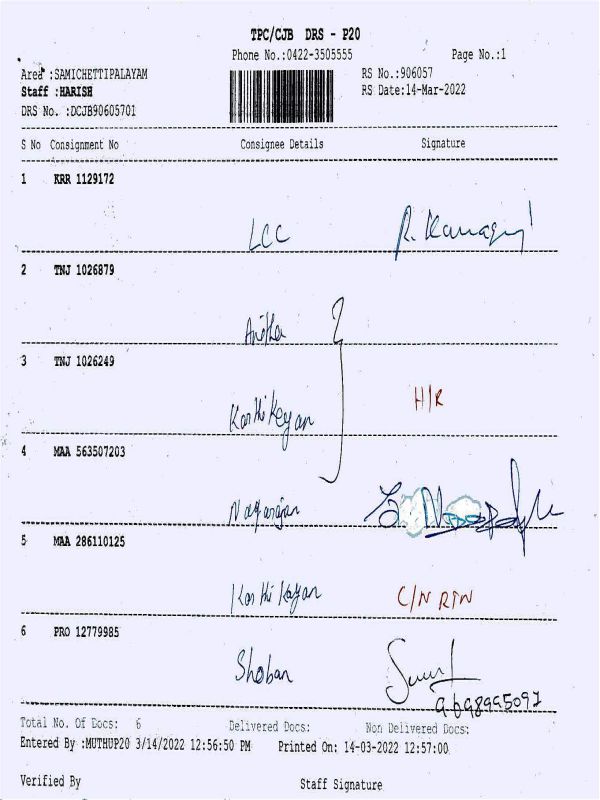 TPC/CJB DRS - P20
Phone No.:0422-3505555 Page No.:1
Area :SAMICHETTIPALAYAM RS No.:906057
Staff :HARISH RS Date:14-Mar-2022
DRS No. :DCJB90605701
S No Consignment No Consignee Details Signature
1 KRR 1129172
LCC R. Kanagaj
2 TNJ 1026879
Anitha
3 TNJ 1026249
Karthikeyan H/R
4 MAA 563507203
Nagarajan
5 MAA 286110125
Karthikeyan C/N RTN
6 PRO 12779985
Shoban
9698995097
Total No. Of Docs: 6 Delivered Docs: Non Delivered Docs:
Entered By :MUTHUP20 3/14/2022 12:56:50 PM Printed On: 14-03-2022 12:57:00
Verified By Staff Signature